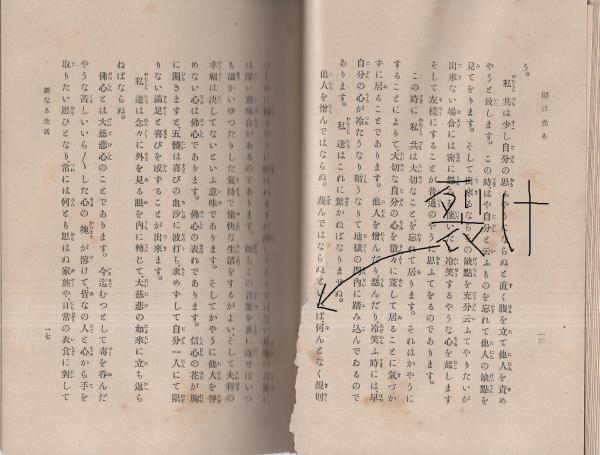 闇は光る
一六
う。
私共は少し自分の思ふやうにならぬと直ぐ腹を立て他人を責め
やうと致します。この時はや自分と云ふものを忘れて他人の缺點を
見てをります。そして出來るなら缺點を充分云ふてやりたいが
出來ない場合には密に冷笑するやうな心を起します
そして左樣にすることが普通のやうに思ふてをるのであります。
この時に私共は大切なことを忘れて居ります。それはかやうに
することによりて大切な自分の心を散々に荒して居ることに氣づか
ずに居ることであります。他人を憎んだり怨んだり冷笑ふ時には早
自分の心が冷たうなり暗うなりて地獄の門內に踏み込んでゐるので
あります。私達はこれに驚かねばなりませぬ。
他人を憎んではならぬ。蔑んではならぬと何んとなく規則
は深い意味
も溫かいゆつたりした氣持で愉快な生活をするがよい、そして夫程の
幸福は決してないといふ意味であります。そしてかやうに他人を咎
めない心は佛心であります。佛心の表れであります。信心の花が胸
に開きますと、五體は喜びの血汐に波打ち、求めずして自分一人にて限
りない滿足と喜びを感ずることが出來ます。
私達は念々に外を見る眼を內に轉じて、大慈悲の如來に立ち返ら
ねばならぬ。
佛心とは大慈悲心のことであります。今迄むつとして毒を呑んだ
やうな苦しいいら〳〵した心の塊が溶けて、皆なの人と心から手を
取りたい思ひとなり、常には何とも思はぬ家族や、日常の衣食に對して
新なる生活
一七